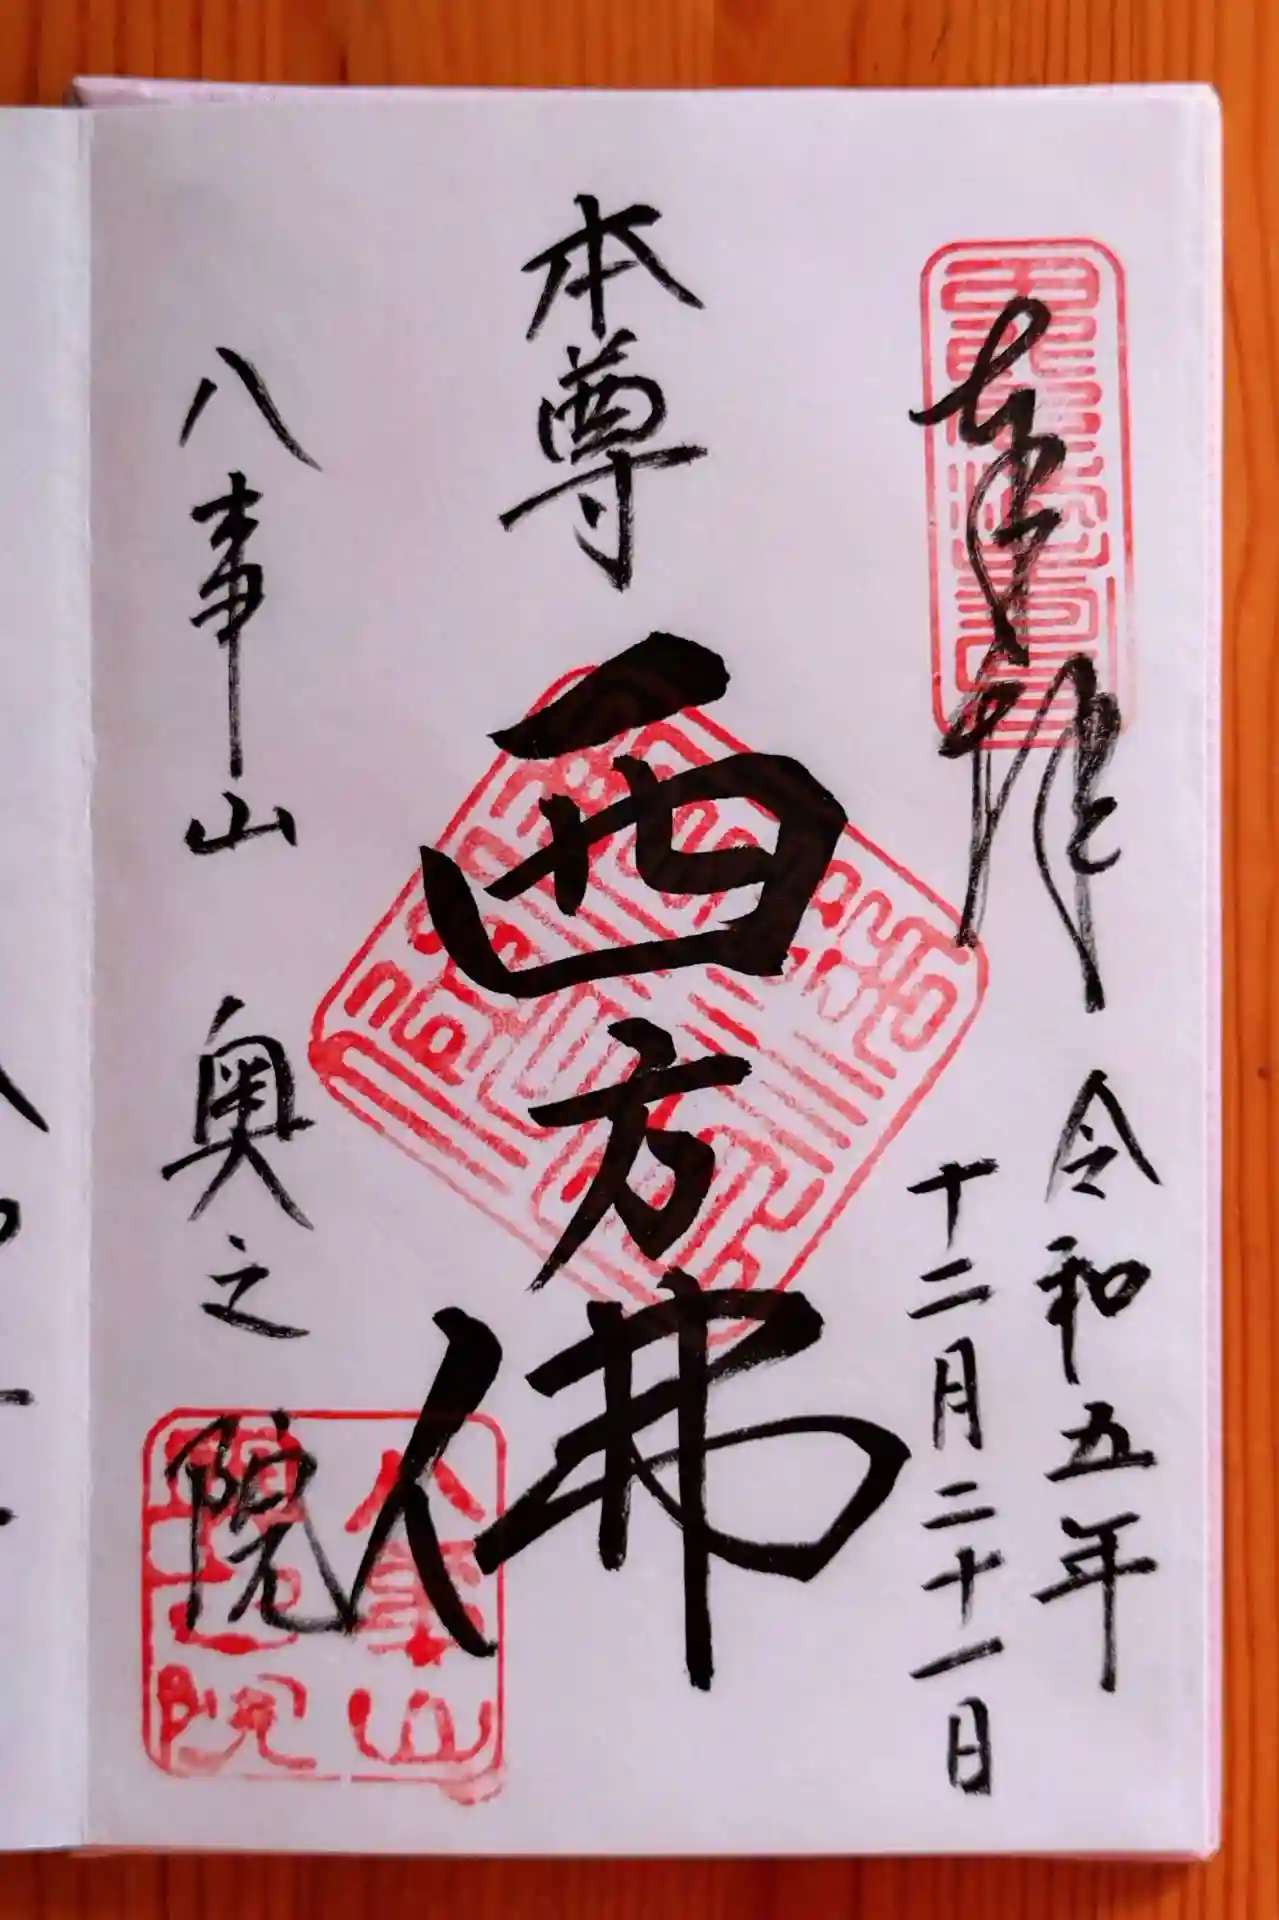 奉拝
令和五年
十二月二十一日
本尊
西方佛
八事山 奥之院
八事山
奥之院